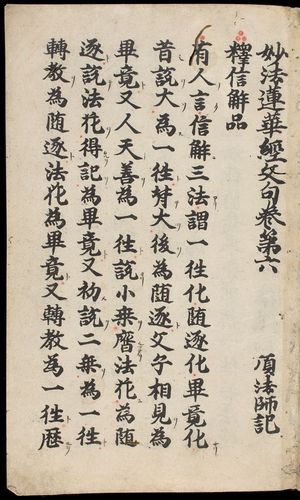 妙法蓮華經文句卷第六 頂法師記
釋信解品
有人言信解三法謂一往化隨逐化畢竟化
昔説大為一往𮎰大後為随逐父子相見為
畢竟又人天善為一往説小乘曆法花為随
逐説法花得記為畢竟又初説二乘為一往
轉教為随逐法花為畢竟又轉教為一往歷